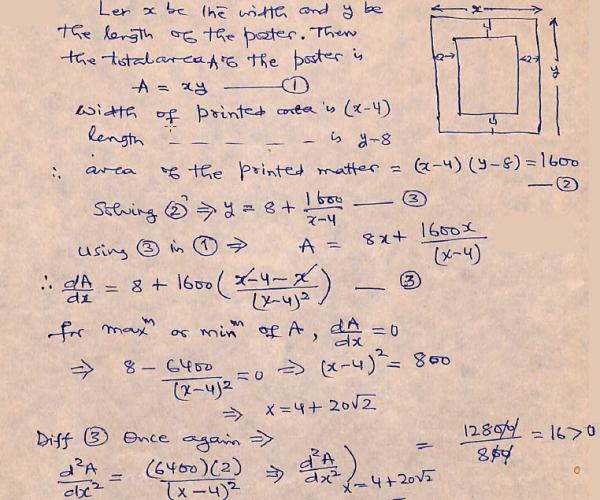 Let x be the width and y be
the length of the poster. Then
the total area A of the poster is
A = xy ——— ①
width of printed area is (x-4)
length — — — — — is y-8
∴ area of the printed matter = (x-4) (y-8) = 1600
— ②
Solving ② ⇒ y = 8 + 1600/(x-4) — ③
Using ③ in ① ⇒ A = 8x + 1600x/(x-4)
∴ dA/dx = 8 + 1600 ( (x-4-x)/(x-4)² ) — ③
for max^m or min^m of A, dA/dx = 0
⇒ 8 - 6400/(x-4)² = 0 ⇒ (x-4)² = 800
⇒ x = 4 + 20√2
Diff ③ Once again ⇒
d²A/dx² = (6400)(2)/(x-4)² ⇒ d²A/dx² ) x = 4 + 20√2 = 12800/800 = 16 > 0
x
4
2
2
y
4